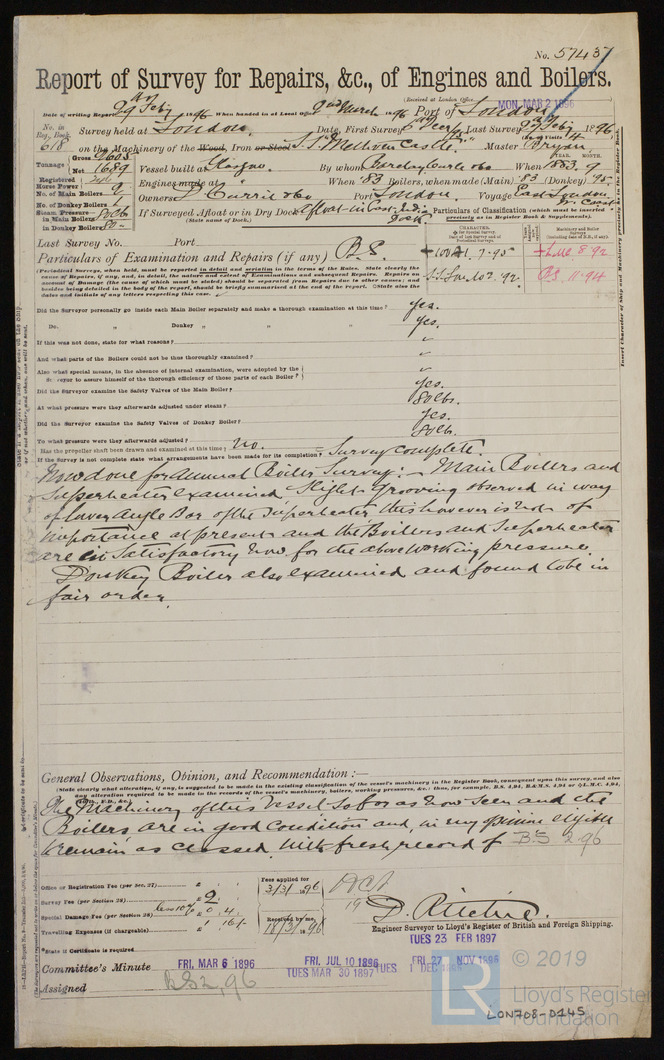 No. 57457
Report of Survey for Repairs, &c., of Engines and Boilers.
(Received at London Office
MON. MAR 2 1896
Date of writing Report 29th Feby 1896 When handed in at Local Office 2nd March 1896 Port of London
No. in Reg. Book. Survey held at London Date, First Survey Last Survey 27th Feby 1896
618 on the Machinery of the Wood, Iron or Steel S.S. "Methven Castle" Master Bryan
(No. of Visits 4
Tonnage Gross 2605 Net 1689 Vessel built at Glasgow By whom Barclay Curle & Co When 1883. 9
YEAR. MONTH.
Registered Horse Power Engines made at When '83 Boilers, when made (Main) '83 (Donkey) 95
No. of Main Boilers 2 Owners D. Currie & Co Port London Voyage East London
No. of Donkey Boilers 1
Steam Pressure in Main Boilers 80lb If Surveyed Afloat or in Dry Dock Afloat in East India Dock
(State name of Dock.)
in Donkey Boiler 80
Particulars of Classification (which must be inserted precisely as in Register Book & Supplements).
Last Survey No. Port
Particulars of Examination and Repairs (if any) B.S.
+100A1. 7.95 +LMC 8.92
S.S. Lon. No 2. 92. B.S. 11.94
(Periodical Surveys, when held, must be reported in detail and seriatim in the terms of the Rules. State clearly the
cause of Repairs, if any, and, in detail, the nature and extent of Examinations and subsequent Repairs. Repairs on
account of Damage (the cause of which must be stated) should be separated from Repairs due to other causes; and
besides being detailed in the body of the report, should be briefly summarised at the end of the report. State also the
dates and initials of any letters respecting this case.
Did the Surveyor personally go inside each Main Boiler separately and make a thorough examination at this time? Yes.
Do. „ Donkey „ „ „ Yes.
If this was not done, state for what reasons? „
And what parts of the Boilers could not be thus thoroughly examined? „
Also what special means, in the absence of internal examination, were adopted by the
Surveyor to assure himself of the thorough efficiency of those parts of each Boiler? „
Did the Surveyor examine the Safety Valves of the Main Boiler? Yes.
At what pressure were they afterwards adjusted under steam? 80lb.
Did the Surveyor examine the Safety Valves of Donkey Boiler? Yes.
To what pressure were they afterwards adjusted? 80lb.
Has the propeller shaft been drawn and examined at this time? No.
If the Survey is not complete state what arrangements have been made for its completion? = Survey complete.
Now done for Annual Boiler Survey:— Main Boilers and
Superheater examined. Slight grooving observed in way
of lower angle Bar of the Superheater this however is not of
importance at present and the Boilers and Superheater
are in Satisfactory now for the above working pressure.
Donkey Boiler also examined and found to be in
fair order.
General Observations, Opinion, and Recommendation:—
(State clearly what alteration, if any, is suggested to be made in the existing classification of the vessel's machinery in the Register Book, consequent upon this survey, and also
any alteration required to be made in the records of the vessel's machinery, boilers, working pressure, &c.: thus, for example, B.S. 4,94, B.&M.S. 4,94 or +L.M.C. 4,94,
The Machinery of this Vessel so far as now seen and the
Boilers are in good condition and in my opinion eligible
to remain as classed. With fresh record of B.S 2.96
Office or Registration Fee (per Sec. 27)
Fees applied for
3/3/1896
Survey Fee (per Section 28) £ 2
less 10%
Special Damage Fee (per Section 28) £ 4
Received by me,
18/3/1896
Travelling Expenses (if chargeable) £ 1 16/-
D. Ritchie.
Engineer Surveyor to Lloyd's Register of British and Foreign Shipping.
*State if Certificate is required
TUES 23 FEB 1897
Committee's Minute FRI. MAR 6 1896 FRI. JUL 10 1896 FRI. 27 NOV 1896
TUES MAR 30 1897 TUES 1 DEC
Assigned BS 2,96
© 2019
Lloyd's Register
Foundation
LON708-0145